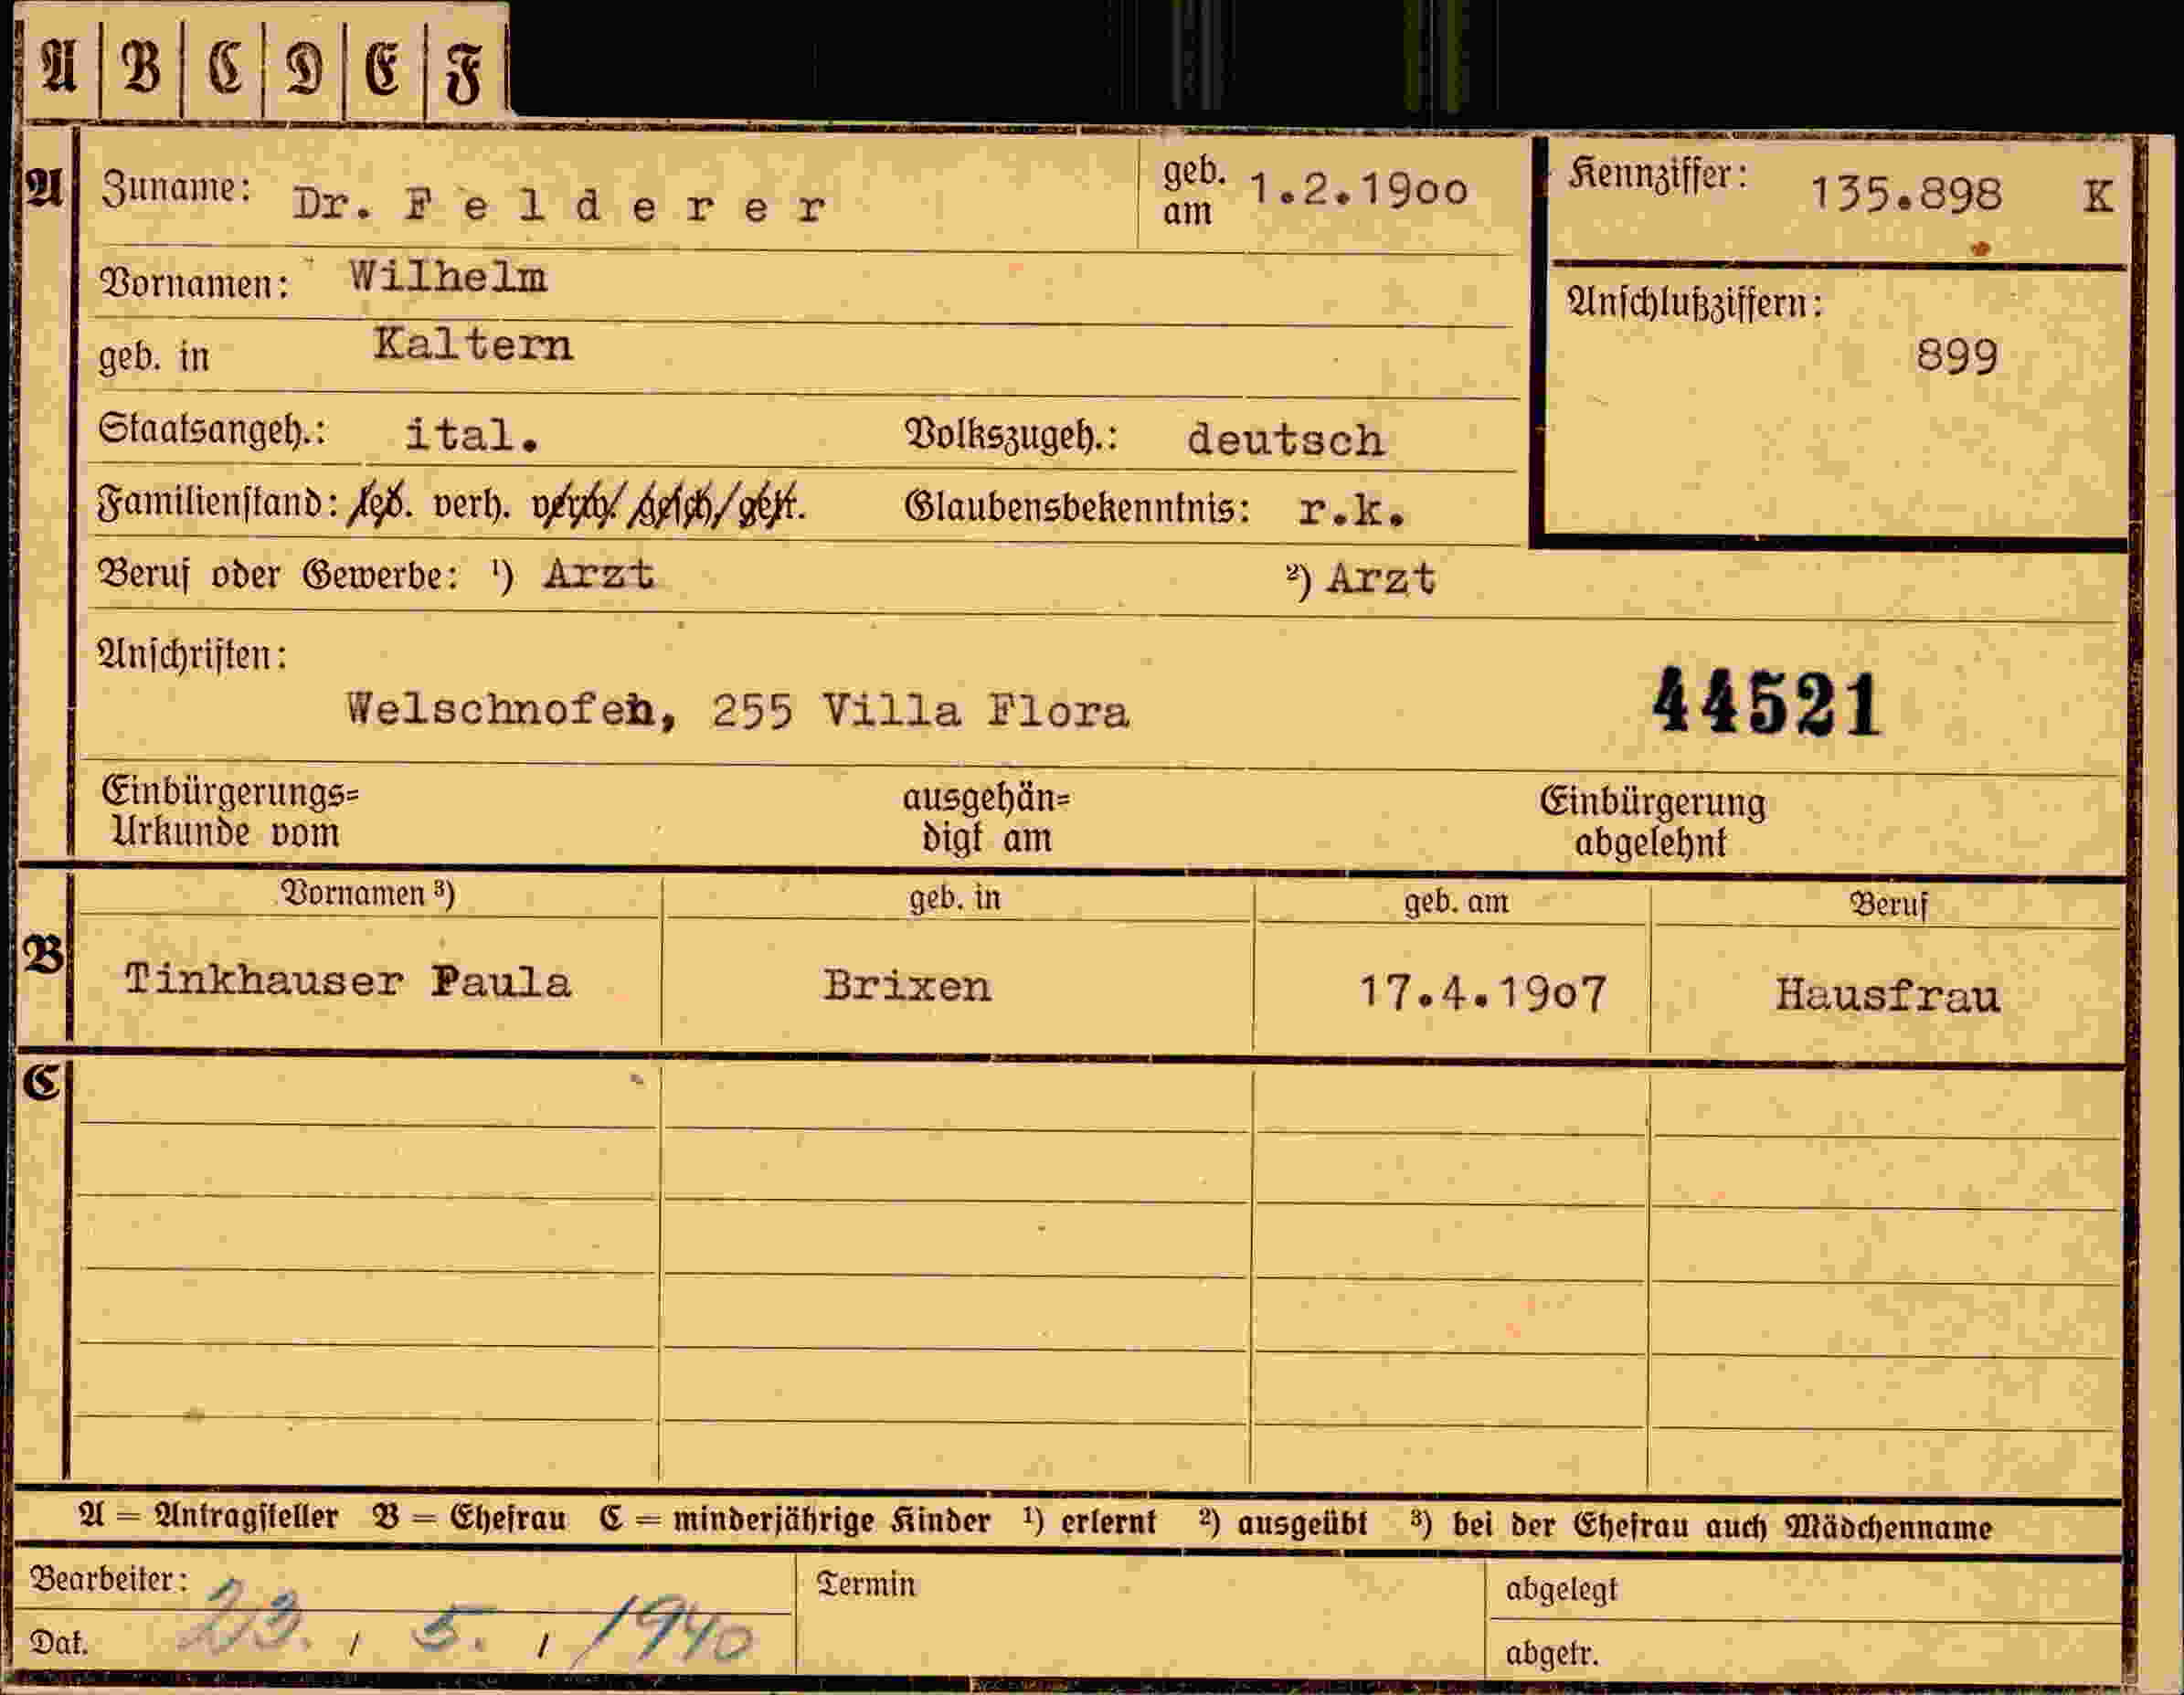 A B C D E F
A Zuname: Dr. F e l d e r e r geb. am 1.2.1900 Kennziffer: 135.898 K
Vornamen: Wilhelm
Anschlußziffern:
geb. in Kaltern 899
Staatsangeh.: ital. Volkszugeh.: deutsch
Familienstand: led. verh. verw. gesch. getr. Glaubensbekenntnis: r.k.
Beruf oder Gewerbe: ¹) Arzt ²) Arzt
Anschriften:
Welschnofen, 255 Villa Flora 44521
Einbürgerungs= ausgehän= Einbürgerung
Urkunde vom digt am abgelehnt
Vornamen ³) geb. in geb. am Beruf
B Tinkhauser Paula Brixen 17.4.1907 Hausfrau
C
A = Antragsteller B = Ehefrau C = minderjährige Kinder ¹) erlernt ²) ausgeübt ³) bei der Ehefrau auch Mädchenname
Bearbeiter: Termin abgelegt
Dat. 23. / 5. / 1940 abgetr.